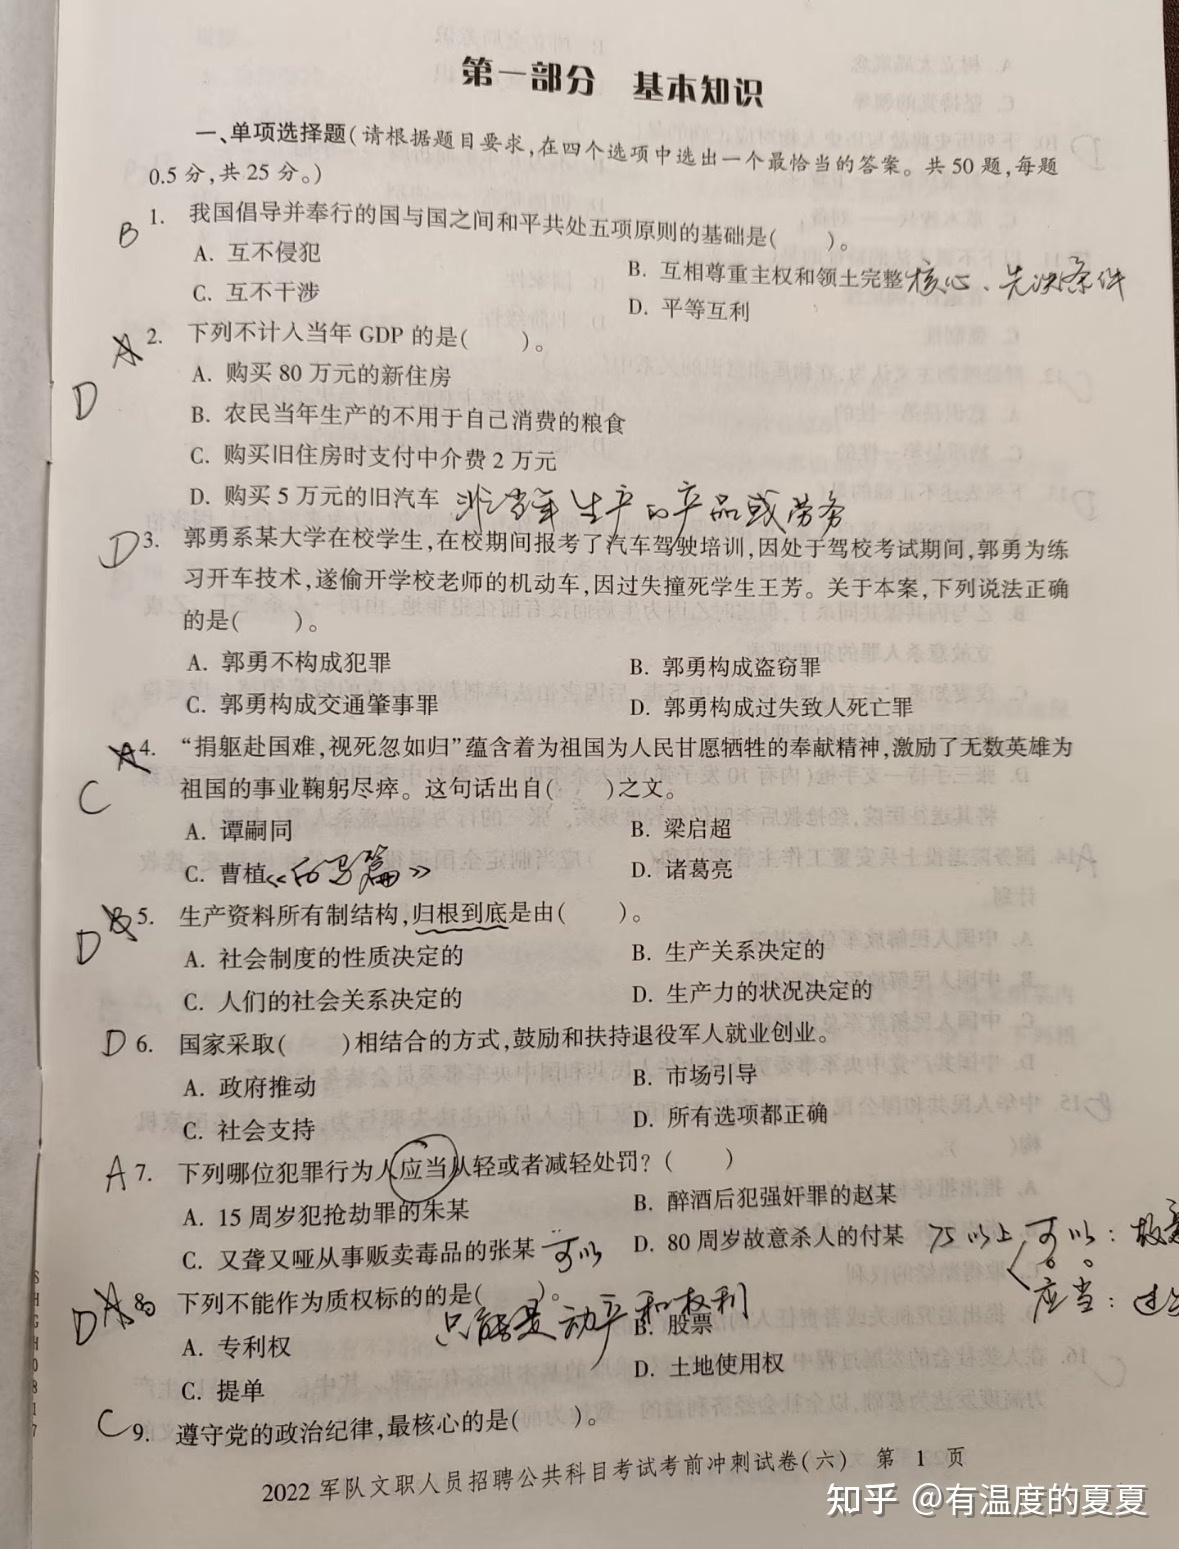 第一部分　基本知识
一、单项选择题(请根据题目要求,在四个选项中选出一个最恰当的答案。共50题,每题
0.5分,共25分。)
B 1. 我国倡导并奉行的国与国之间和平共处五项原则的基础是(　　)。
A. 互不侵犯
B. 互相尊重主权和领土完整 核心、先决条件
C. 互不干涉
D. 平等互利
A 2. 下列不计入当年GDP的是(　　)。
D
A. 购买80万元的新住房
B. 农民当年生产的不用于自己消费的粮食
C. 购买旧住房时支付中介费2万元
D. 购买5万元的旧汽车 非当年生产的产品或劳务
D 3. 郭勇系某大学在校学生,在校期间报考了汽车驾驶培训,因处于驾校考试期间,郭勇为练
习开车技术,遂偷开学校老师的机动车,因过失撞死学生王芳。关于本案,下列说法正确
的是(　　)。
A. 郭勇不构成犯罪
B. 郭勇构成盗窃罪
C. 郭勇构成交通肇事罪
D. 郭勇构成过失致人死亡罪
A 4. “捐躯赴国难,视死忽如归”蕴含着为祖国为人民甘愿牺牲的奉献精神,激励了无数英雄为
C
祖国的事业鞠躬尽瘁。这句话出自(　　)之文。
A. 谭嗣同
B. 梁启超
C. 曹植《白马篇》
D. 诸葛亮
B 5. 生产资料所有制结构,归根到底是由(　　)。
D
A. 社会制度的性质决定的
B. 生产关系决定的
C. 人们的社会关系决定的
D. 生产力的状况决定的
D 6. 国家采取(　　)相结合的方式,鼓励和扶持退役军人就业创业。
A. 政府推动
B. 市场引导
C. 社会支持
D. 所有选项都正确
A 7. 下列哪位犯罪行为人应当从轻或者减轻处罚？(　　)
A. 15周岁犯抢劫罪的朱某
B. 醉酒后犯强奸罪的赵某
C. 又聋又哑从事贩卖毒品的张某 可以
D. 80周岁故意杀人的付某 75以上 可以：故意
应当：过失
D A 8. 下列不能作为质权标的的是(　　)。
只能是动产和权利
A. 专利权
B. 股票
C. 提单
D. 土地使用权
C 9. 遵守党的政治纪律,最核心的是(　　)。
2022军队文职人员招聘公共科目考试考前冲刺试卷(六)　第 1 页
SHGH0817
知乎 @有温度的夏夏